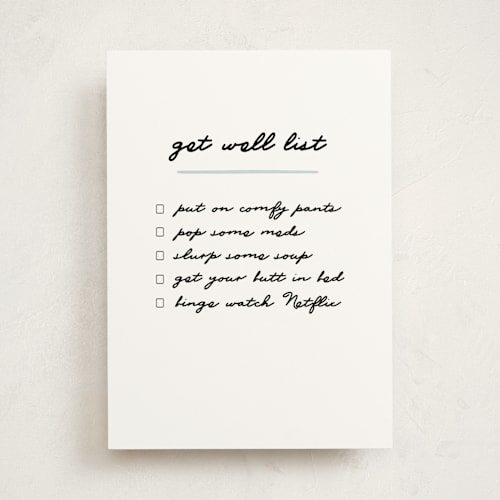 get well list
put on comfy pants
pop some meds
slurp some soup
get your butt in bed
binge watch Netflix